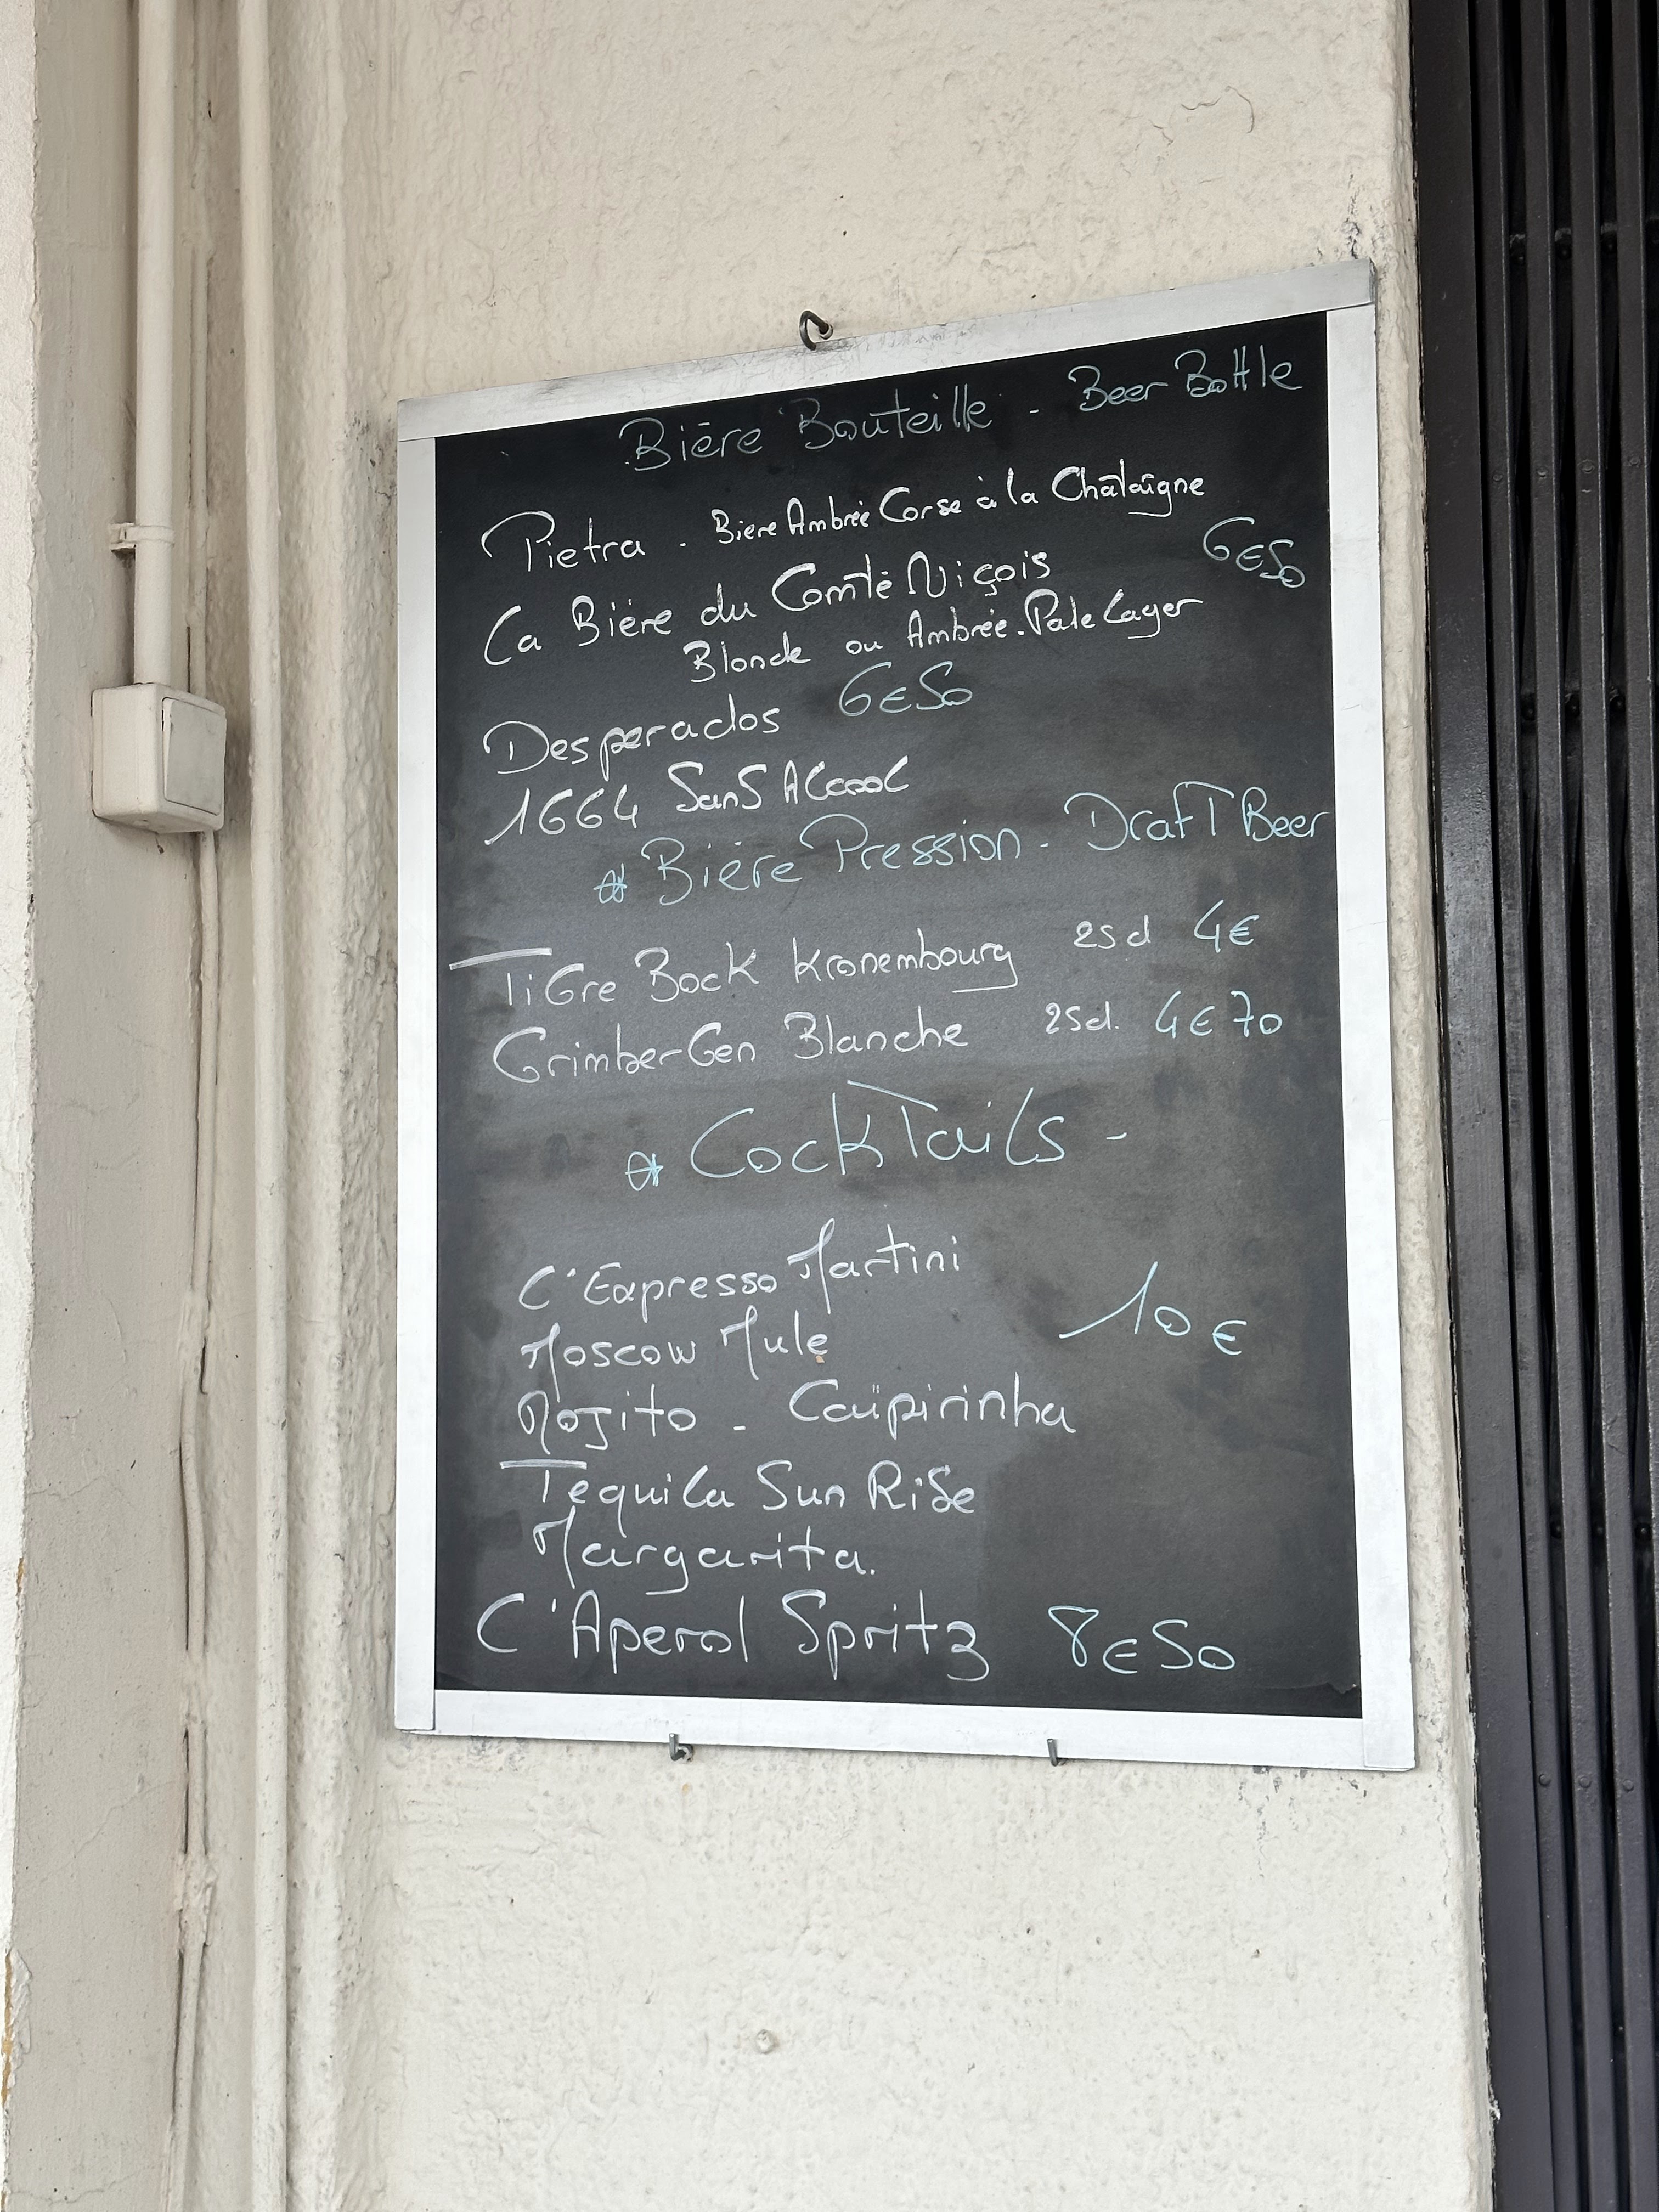 Bière Bouteille - Beer Bottle
Pietra - Biere Ambrée Corse à la Châtaîgne
6€50
La Bière du Comté Niçois
Blonde ou Ambrée. Pale Lager
Desperados 6€50
1664 Sans Alcool
* Bière Pression - Draft Beer
TiGre Bock Kronembourg 25cl 4€
GrimberGen Blanche 25cl. 4€70
* CockTails -
L'Expresso Martini
10€
Moscow Mule
Mojito - Caïpirinha
Tequila Sun Rise
Margarita.
L'Aperol Spritz 8€50